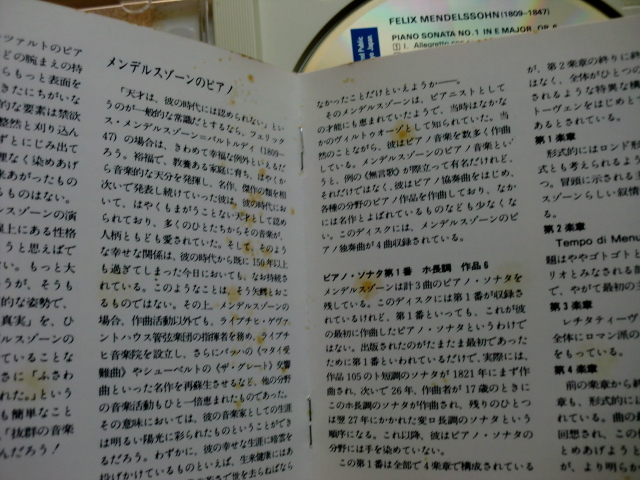 FELIX MENDELSSOHN (1809-1847)
PIANO SONATA NO.1 IN E MAJOR, OP.6
メンデルスゾーンのピアノ
「天才は、彼の時代には認められない」とい
うのが一般的な常識だとするなら、フェリック
ス・メンデルスゾーン=バルトルディ(1809—
47) の場合は、きわめて幸福な例外といえるだ
ろう。裕福で、教養ある家庭に育ち、はやくか
ら音楽的な天分を発揮し、名作、傑作の類を相
次いで発表し続けていった彼は、彼の時代にお
いて、はやくもまがうことない天才として認め
られており、多くのひとたちからその音楽が、
人柄ともども愛されていた。そして、そのよう
な幸せな関係は、彼の時代から既に150年以上
も過ぎてしまった今日においても、なお持続さ
れている。このようなことは、そう矢鱈とおこ
るものではない。その上、メンデルスゾーンの
場合、作曲活動以外でも、ライプチヒ・ゲヴァ
ントハウス管弦楽団の指揮者を務め、ライプチ
ヒ音楽院を設立し、さらにバッハの《マタイ受
難曲》やシューベルトの《ザ・グレート》交響
曲といった名作を再蘇生させるなど、他の分野
の音楽活動もひと一倍恵まれたものであった。
その意味においては、彼の音楽家としての生涯
は明るい陽光に彩られたものということができ
るだろう。わずかに、彼の幸せな生涯に暗雲を
投げかけているものといえば、生来健康には
なかったことだけといえようか――。
そのメンデルスゾーンは、ピアニストとして
の才能にも恵まれていたようで、当時はなかな
かのヴィルトゥオーゾとして知られていた。当
然のことながら、彼はピアノ音楽を数多く作曲
している。メンデルスゾーンのピアノ音楽とい
うと、例の《無言歌》が際立って有名だけれど、
それだけではなく、彼はピアノ協奏曲をはじめ、
各種の分野のピアノ作品を作曲しており、なか
には名作とよばれているものなども少なくな
い。このディスクには、メンデルスゾーンのピ
アノ独奏曲が4曲収録されている。
ピアノ・ソナタ第1番 ホ長調 作品6
メンデルスゾーンは計3曲のピアノ・ソナタを
残している。このディスクには第1番が収録さ
れているけれど、第1番といっても、これが彼
の最初に作曲したピアノ・ソナタというわけで
はない。出版されたのがたまたま最初であった
ために第1番といわれているだけで、実際には、
作品105のト短調のソナタが1821年にまず作
曲され、次いで26年、作曲者が17歳のときに
このホ長調のソナタが作曲され、残りのひとつ
は翌27年にかかれた変ロ長調のソナタという
順序になる。これ以降、彼はピアノ・ソナタの
分野には手を染めていない。
この第1番は全部で4楽章で構成されている
が、第2楽章の終りに
はなく、全体がひとつ
されるような特異な構
トーヴェンをはじめとし
あるとされている。
第1楽章
形式的にはロンド形
式とも考えられるよう
つ。冒頭に示される主
スゾーンらしい叙情
る。
第2楽章
Tempo di Menu
題はややゴトゴトと
リオとみなされる
で、やがて最初の主
第3楽章
レチタティーヴ
全体にロマン派の
をもっている。
第4楽章
前の楽章から終
章も、形式的には
れている。曲の
回想され、この
とめあげよう
が、より明らか